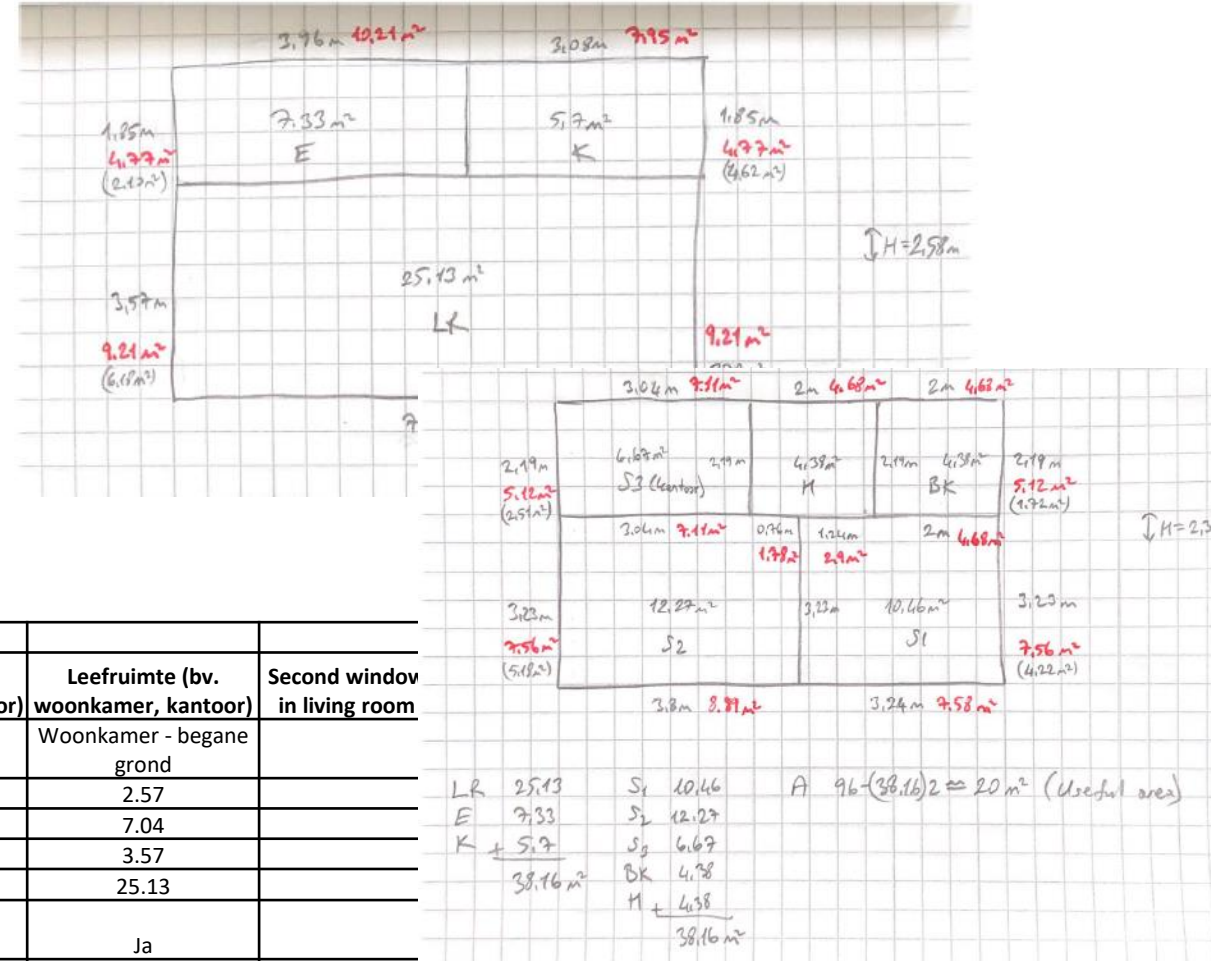 3,96m 10,21m²
3,08m 7,95m²
7.33m²
E
5,7m²
K
1,85m
4,77m²
1,85m
4,77m²
(4,62m²)
H=2,58m
25,13m²
LK
3,57m
9.21m²
(6,18m²)
9,21m²
7
3,04m 7.11m²
2m 4,68m²
2m 4,68m²
2,19m
5,12m²
(2,51m²)
6,67m²
S3 (kantoor)
2,19m
4,38m²
H
2,19m
4,38m²
BK
2,19m
5,12m²
(1.72m²)
H=2,3
3,04m 7.11m²
0,76m
1,78m²
1,24m
2,9m²
2m 4,68m²
3,23m
7,56m²
(5,18m²)
12,27m²
S2
3,23m
10,46m²
S1
3,23m
7,56m²
(4,22m²)
3,8m 8.89m²
3,24m 7.58m²
or)
Leefruimte (bv.
woonkamer, kantoor)
Second window
in living room
Woonkamer - begane
grond
2.57
7.04
3.57
25.13
Ja
LR 25,13
E 7,33
K + 5,7
38,16m²
S1 10,46
S2 12,27
S3 6,67
BK 4,38
H + 4,38
38,16m²
A 96-(38,16)2 ≃ 20m² (Useful area)